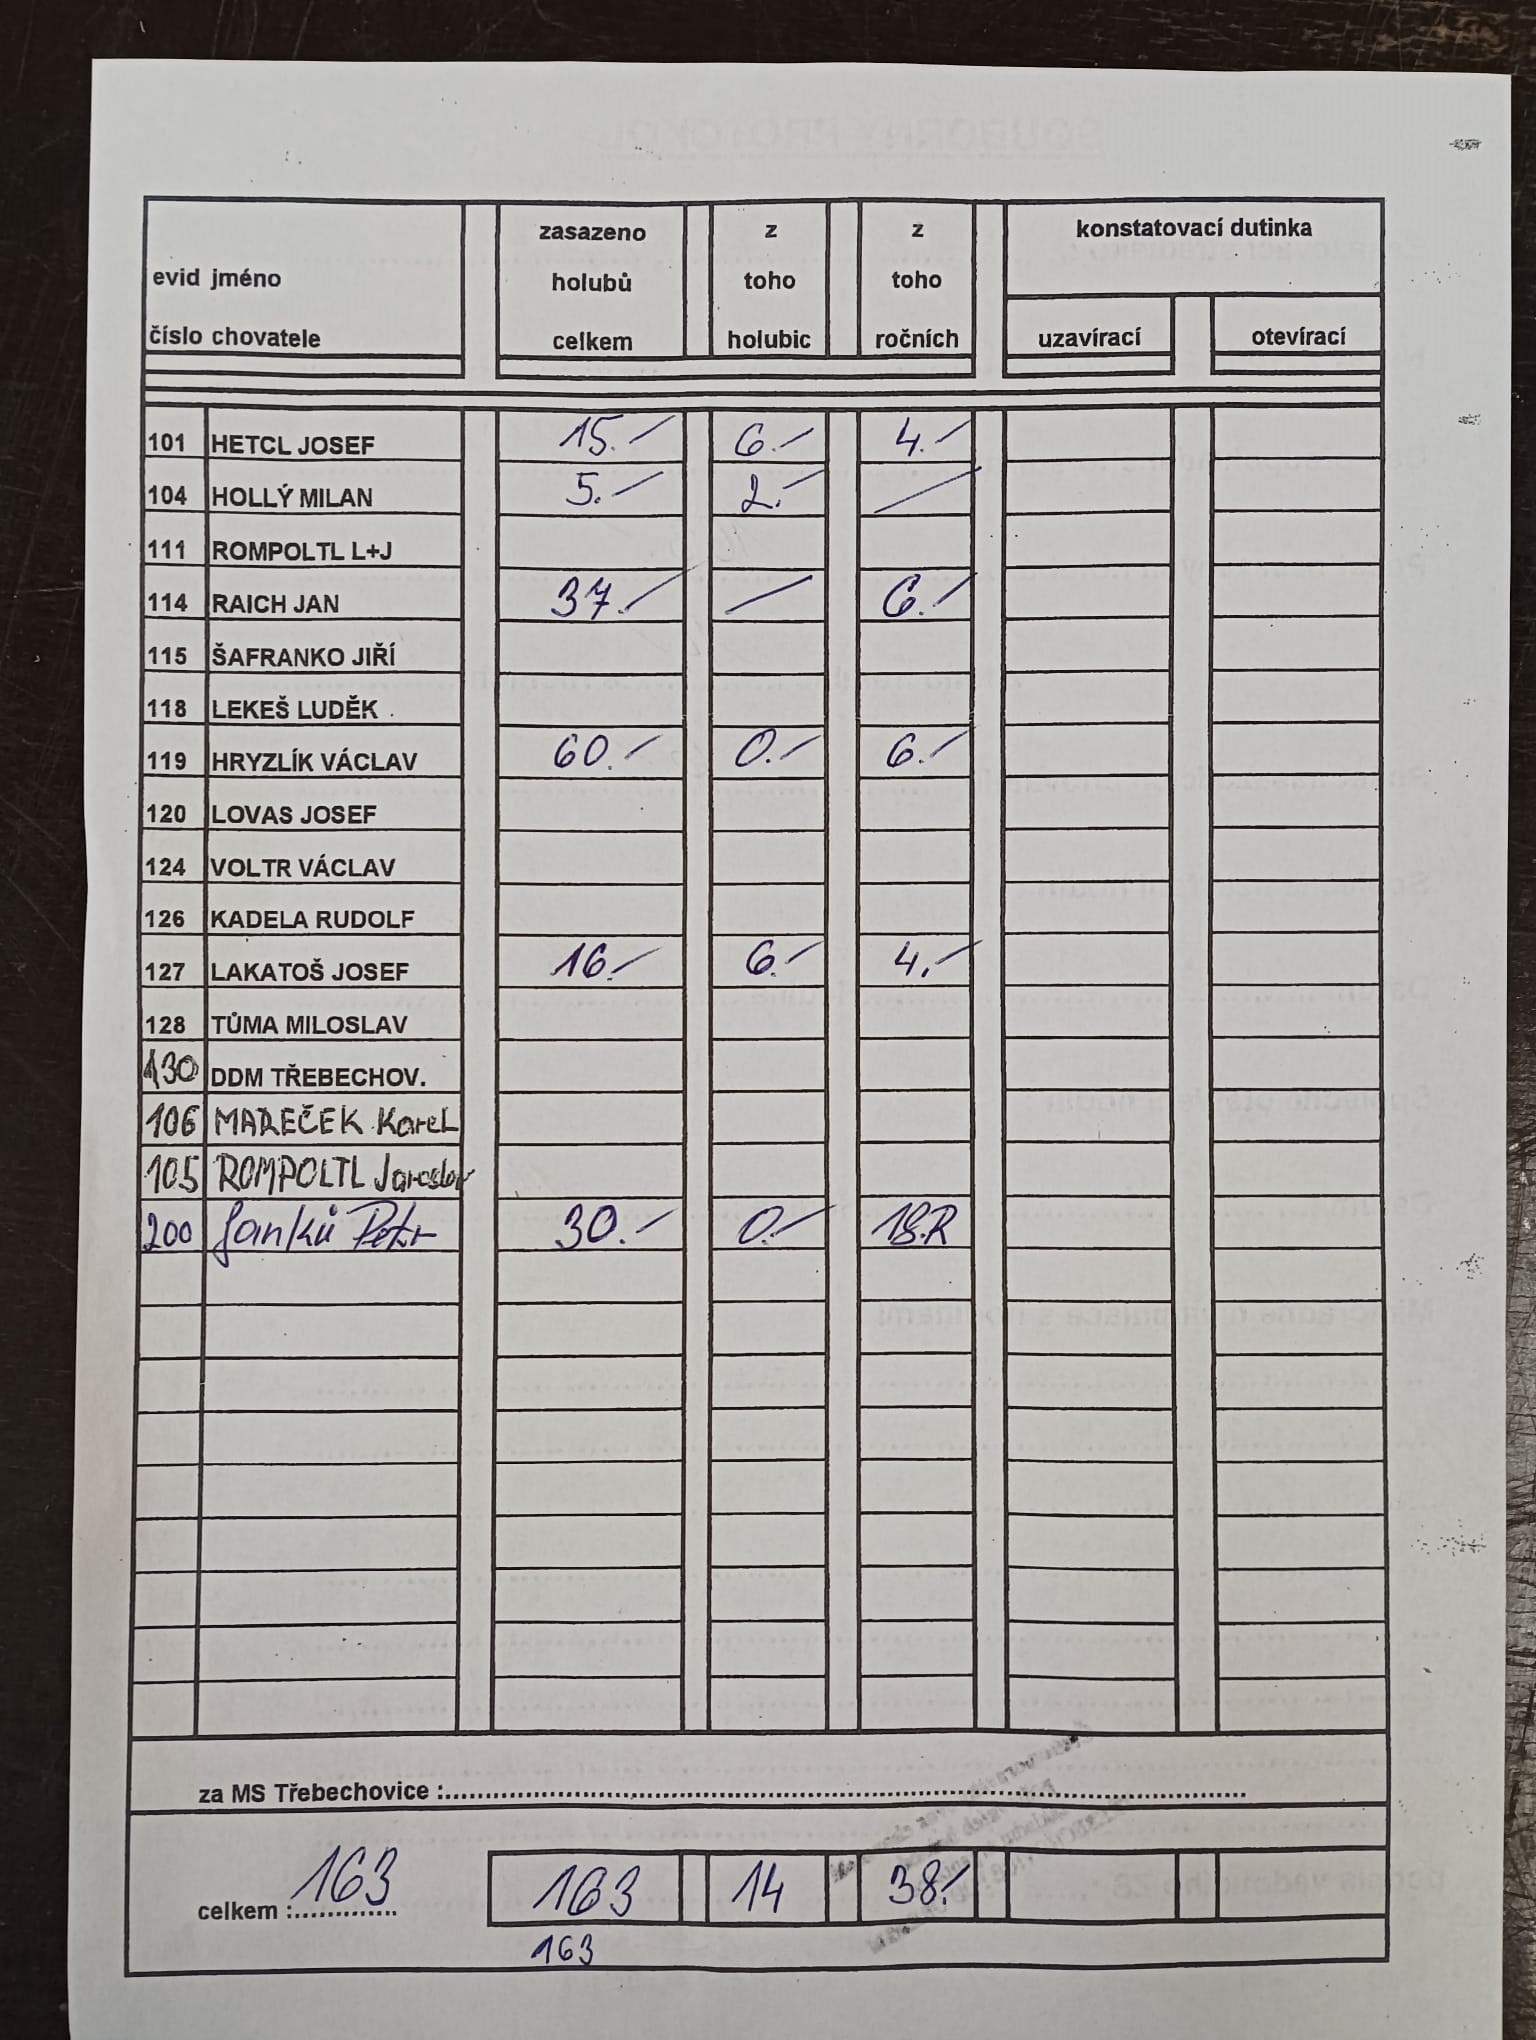 evid jméno
číslo chovatele
zasazeno
holubů
celkem
z
toho
holubic
z
toho
ročních
konstatovací dutinka
uzavírací
otevírací
101 HETCL JOSEF 15.- 6.- 4.-
104 HOLLÝ MILAN 5.- 2.- -
111 ROMPOLTL L+J
114 RAICH JAN 37.- - 6.-
115 ŠAFRANKO JIŘÍ
118 LEKEŠ LUDĚK
119 HRYZLÍK VÁCLAV 60.- 0.- 6.-
120 LOVAS JOSEF
124 VOLTR VÁCLAV
126 KADELA RUDOLF
127 LAKATOŠ JOSEF 16.- 6.- 4.-
128 TŮMA MILOSLAV
130 DDM TŘEBECHOV.
106 MAREČEK Karel
105 ROMPOLTL Jaroslav
200 Janků Petr 30.- 0.- 18.R
za MS Třebechovice :
celkem : 163 163 14 38.-
163